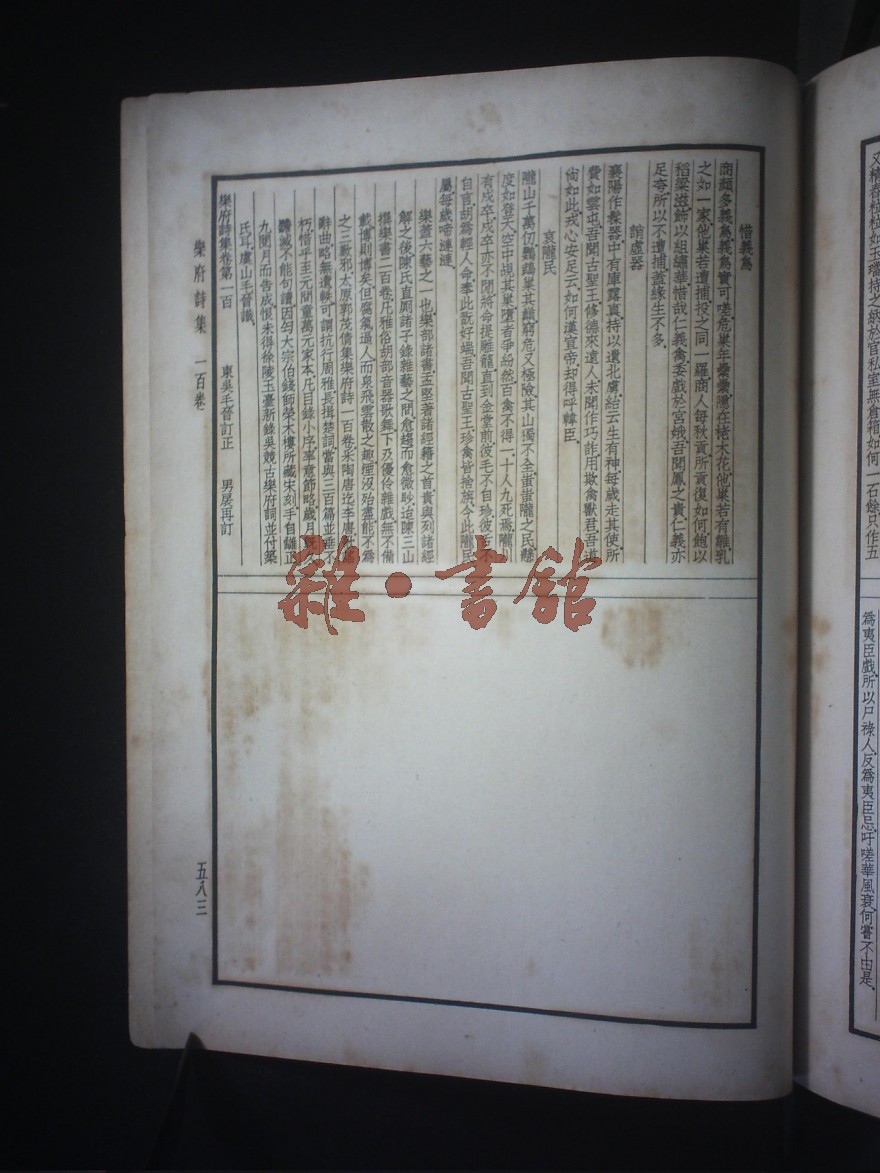 又繞春枝粒如玉璫持之納於官私室無倉箱如何一石餘只作五
爲夷臣戲所以尸祿人反爲夷臣忌吁嗟華風衰何嘗不由是
惜義鳥
商顏多義鳥義鳥實可嗟危巢年纍纍隱在栲木花他巢若有雛乳
之如一家他巢若遭捕投之同一羅商人每秋貢所貢復如何飽以
稻粱滋飾以組繡華惜哉仁義禽委戲於宮娥吾聞鳳之貴仁義亦
足夸所以不遭捕蓋緣生不多
誚虛器
襄陽作髹器中有庫露真持以遺北虜紿云生有神每歲走其使所
費如雲屯吾聞古聖王修德來遠人未聞作巧詐用欺禽獸君吾道
尚如此戎心安足云如何漢宣帝却得呼韓臣
哀隴民
隴山千萬仞鸚鵡巢其巔窮危又極險其山猶不全蚩蚩隴之民懸
度如登天空中覘其巢墮者爭紛然百禽不得一十人九死焉隴
有戍卒戍卒亦不閑將命提雕籠直到金堂前彼毛不自珍彼
自言胡爲輕人命奉此翫好端吾聞古聖王珍禽皆捨旃今此隴民
屬每歲啼漣漣
樂蓋六藝之一也樂部諸書孟堅著諸經籍之首貴與列諸經
解之後陳氏直厠諸子錄雜藝之間愈趨而愈微眇迨陳三山
撰樂書二百卷凡雅俗胡部音器歌舞下及優伶雜戲無不備
載博則博矣但腐氣逼人而泉飛雲散之趣湮沒殆盡能不爲
之三歎邪太原郭茂倩集樂府詩一百卷采陶唐迄李唐
辭曲略無遺軼可謂抗行周雅長揖楚詞當與三百篇並垂不
朽惜乎至元間童萬元家本凡目錄小序率意節略歲月
滅不能句讀因匄大宗伯錢師榮木樓所藏宋刻手自讎正
九閱月而告成恨未得徐陵玉臺新錄吳兢古樂府詞並付築
氏耳虞山毛晉識
樂府詩集卷第一百 東吳毛晉訂正 男扆再訂
樂府詩集 一百卷 五八三
雜·書館